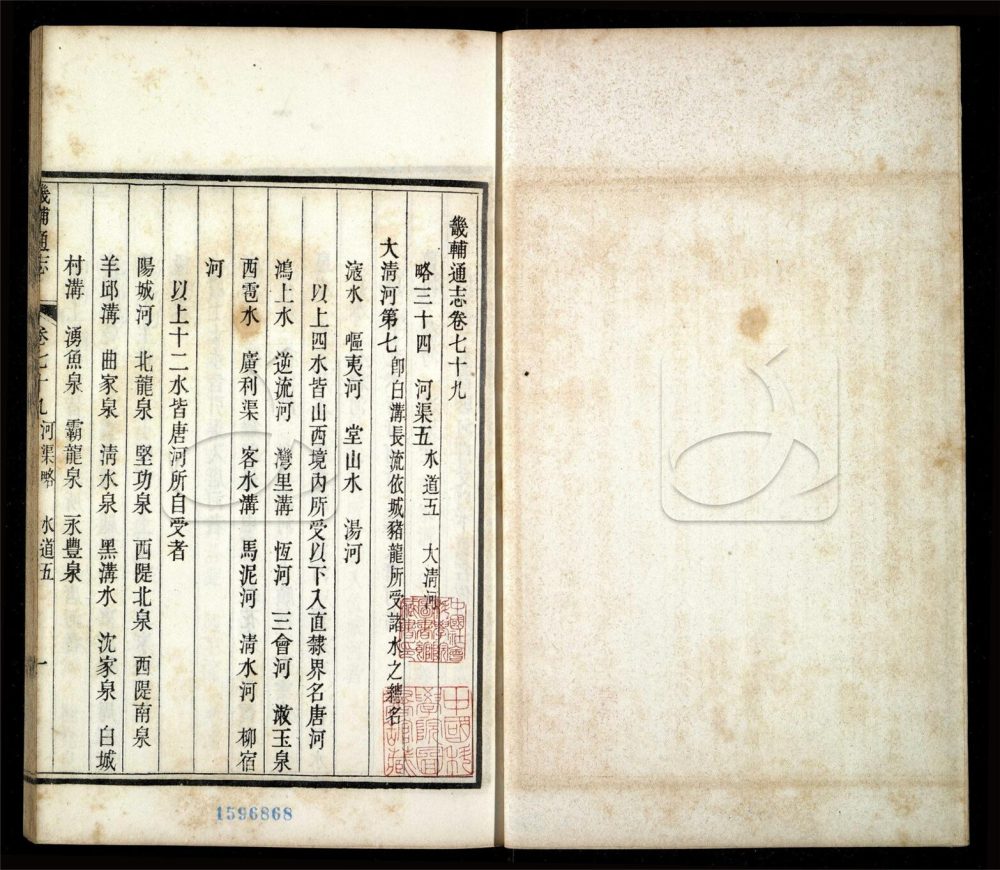 畿輔通志卷七十九
略三十四 河渠五 水道五 大清河
大清河第七 卽白溝長流依城豬龍所受諸水之總名
滱水 嘔夷河 堂山水 湯河
以上四水皆山西境內所受以下入直隸界名唐河
鴻上水 逆流河 灣里溝 恆河 三會河 漵玉泉
西雹水 廣利渠 客水溝 馬泥河 清水河 柳宿
河
以上十二水皆唐河所自受者
陽城河 北龍泉 堅功泉 西隄北泉 西隄南泉
羊邱溝 曲家泉 清水泉 黑溝水 沈家泉 白城
村溝 湧魚泉 霸龍泉 永豐泉
畿輔通志 卷七十九 河渠略 水道五 一
1596868